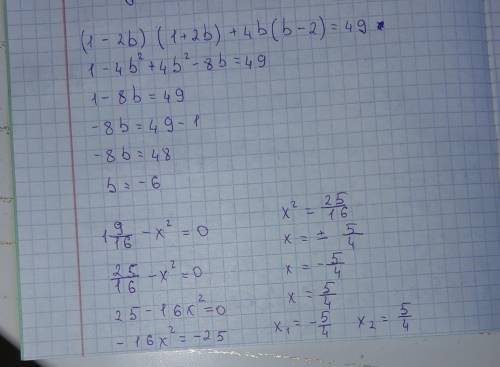 (1-2b) (1+2b) + 4b(b-2) = 49
1-4b²+4b²-8b=49
1-8b=49
-8b=49-1
-8b=48
b=-6
1 9/16 - x² = 0
25/16 - x² = 0
25-16x²=0
-16x²=-25
x² = 25/16
x = ± 5/4
x = -5/4
x = 5/4
x₁ = -5/4 x₂ = 5/4